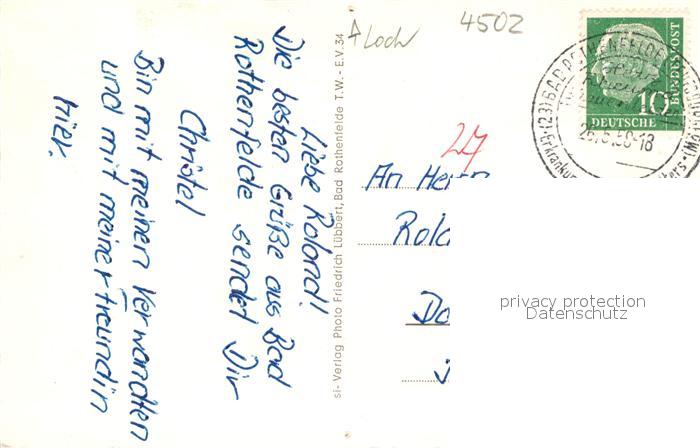 Liebe Roland!
Die besten Grüße aus Bad
Rothenfelde sendet Dir
Christel
Bin mit meinen Verwandten
und mit meiner Freundin
hier.
si-Verlag Photo Friedrich Lübbert, Bad Rothenfelde T.W. - E.V. 34
A Loch
4502
27
An Herrn
Rola
Do
ü
10
DEUTSCHE
BUNDESPOST
(23) BAD ROTHENFELDE
-18
privacy protection
Datenschutz